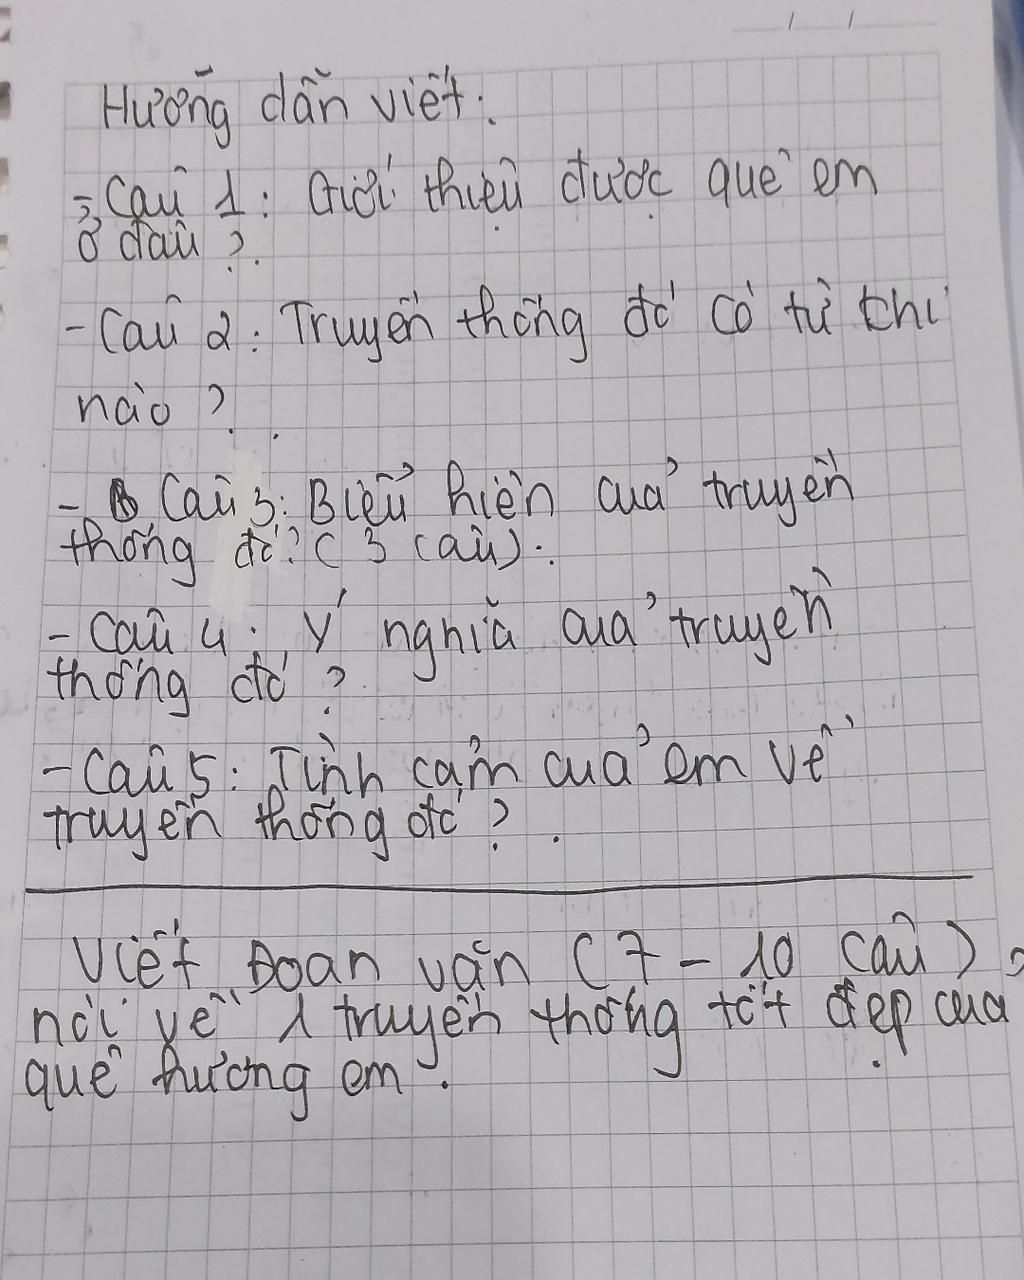 Hướng dẫn viết:
- Câu 1: Giới thiệu được quê em
ở đâu?.
- Câu 2: Truyền thống đó có từ khi
nào?.
- Câu 3: Biểu hiện của truyền
thống đó? (3 câu).
- Câu 4: Ý nghĩa của truyền
thống đó?
- Câu 5: Tình cảm của em về
truyền thống đó?.
Viết Đoạn văn (7 - 10 câu)
nói về 1 truyền thống tốt đẹp của
quê hương em.